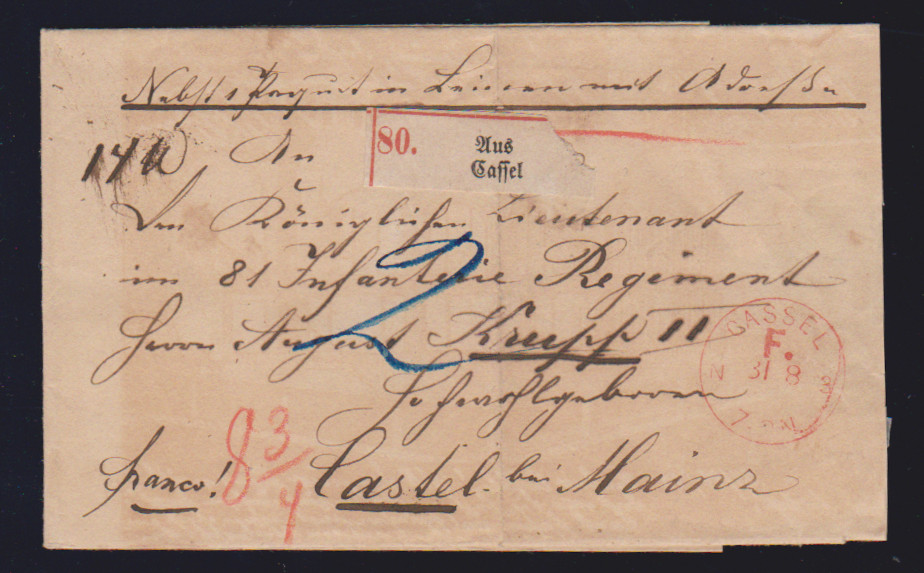 Nebst 1 Paquet in Leinen mit Adresse
80. Aus
Cassel
14
An
den Königlichen Lieutenant
im 81 Infanterie Regiment
Herrn August Krupp II
Hochwohlgeboren
franco! Castel bei Mainz
2
8 3/4
CASSEL
F.
N 31 8